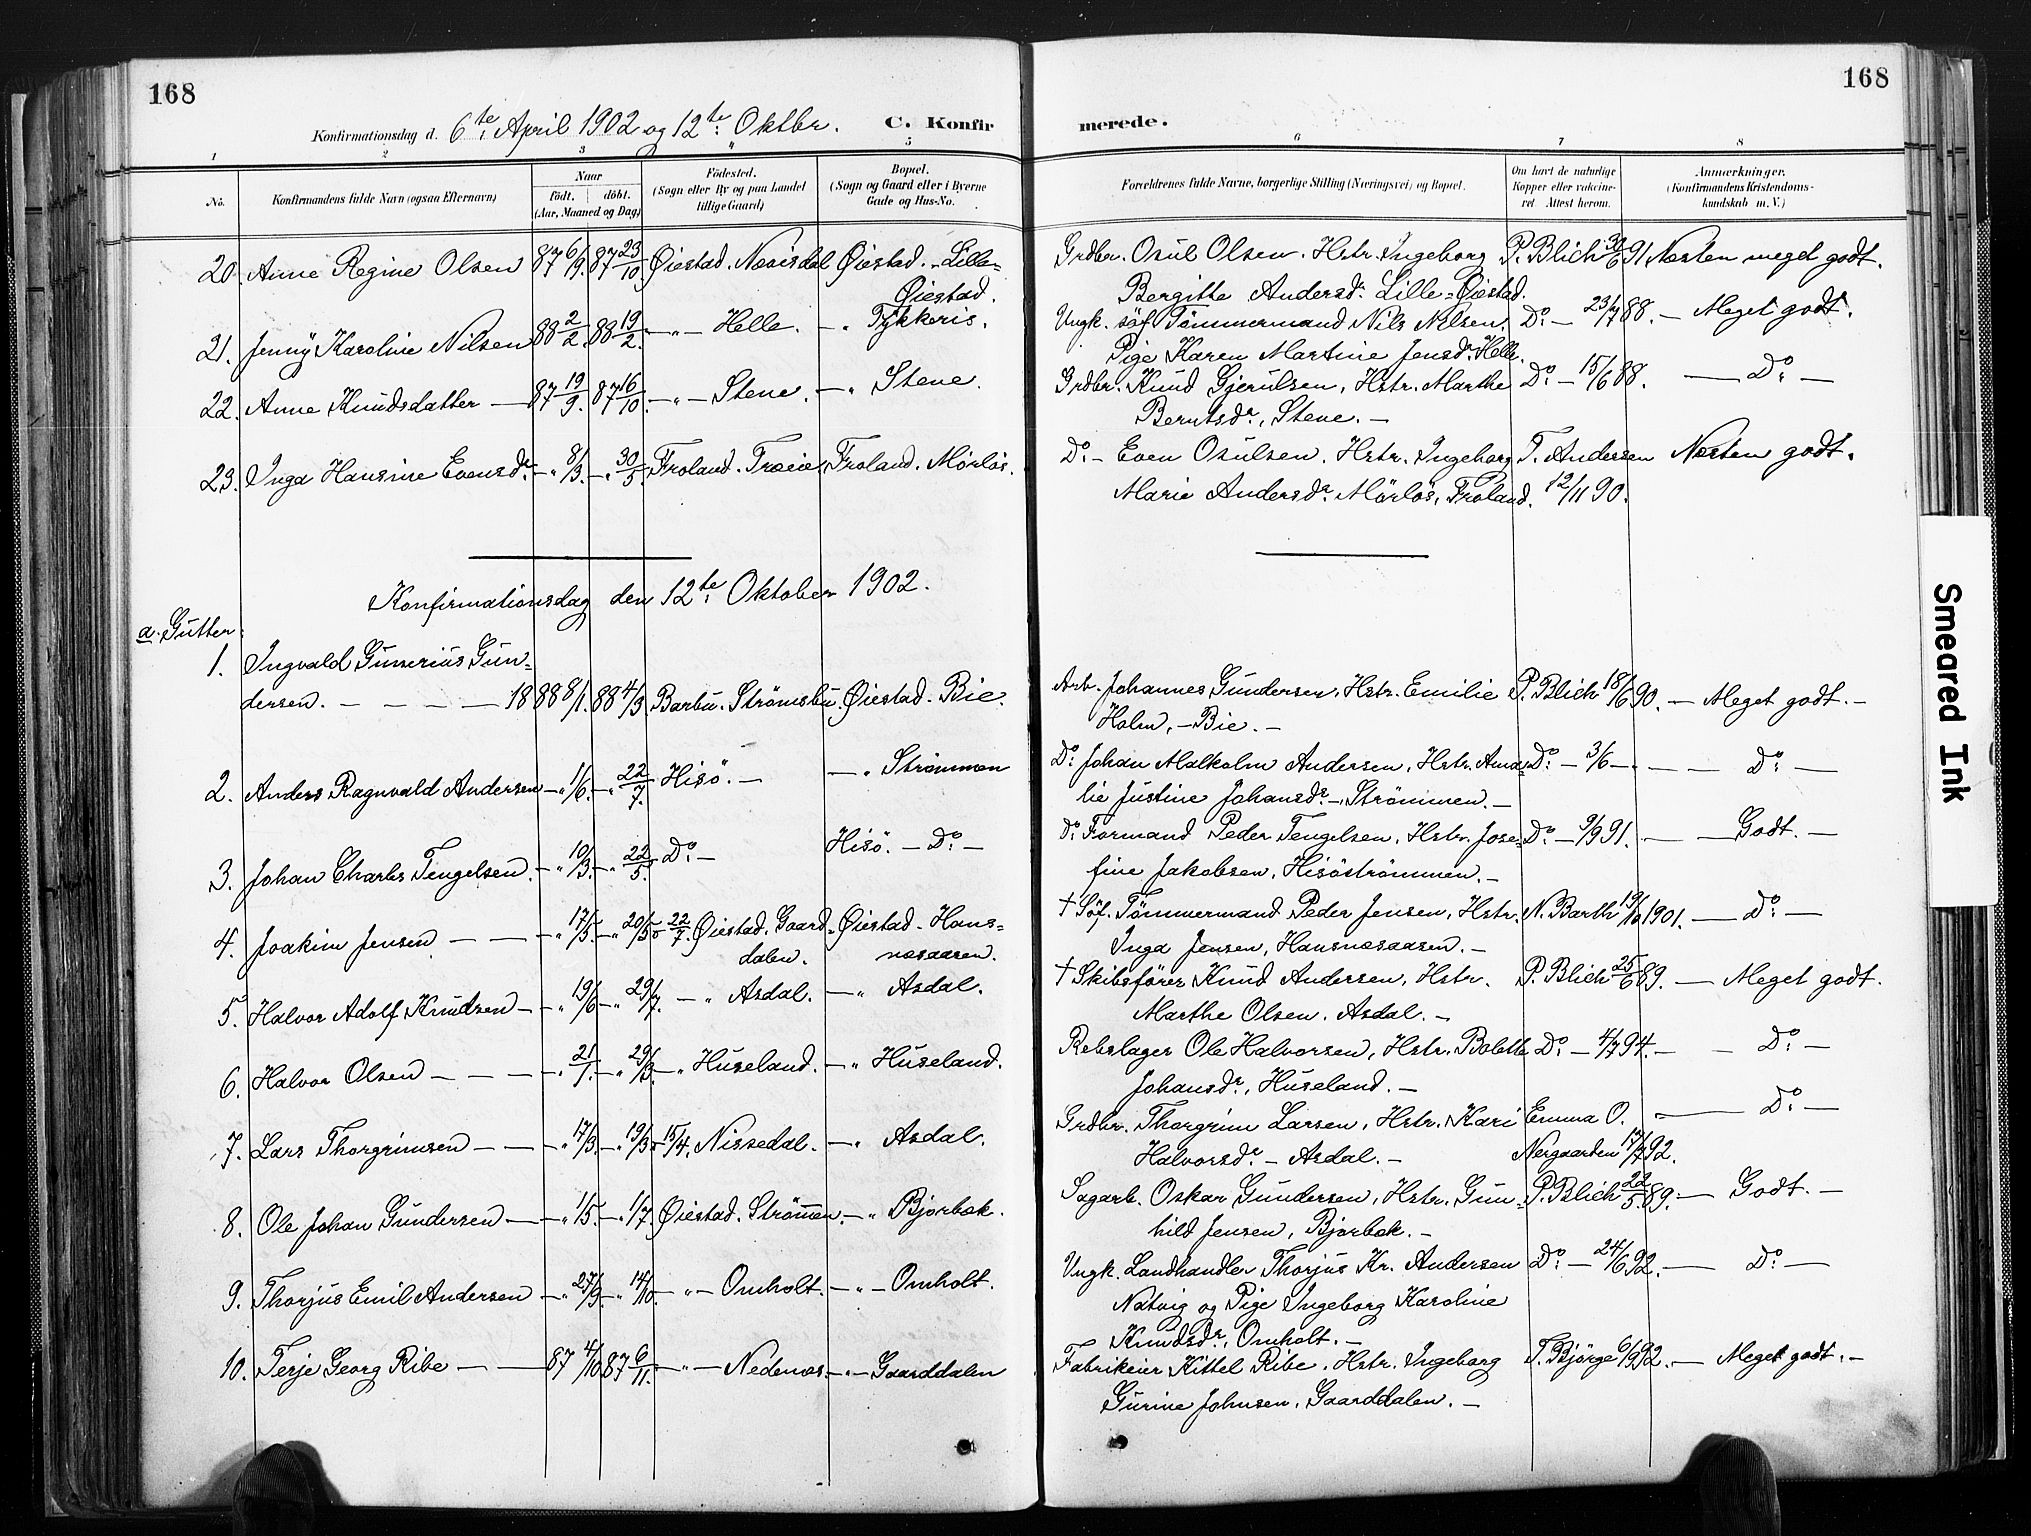 168
168
Konfirmationsdag d. 6te April 1902 og 12te Oktbr. C. Konfirmerede.
1 2 3 5 6 7 8
No. Konfirmandens fulde Navn (ogsaa Efternavn) Naar födt. döbt. (Aar, Maaned og Dag) Födested. (Sogn eller By og paa Landet tillige Gaard) Bopæl. (Sogn og Gaard eller i Byerne Gade og Hus-No. Forældrenes fulde Navne, borgerlige Stilling (Næringsvei) og Bopæl. Om havt de naturlige Kopper eller vaccineret Attest herom. Anmerkninger. (Konfirmandens Kristendomskundskab m. V.)
20. Anne Regine Olsen 87 6/9. 87 23/10 Øiestad. Nævisdal Øiestad. Lille= Grdbr. Osul Olsen. Hstr. Ingeborg P. Blich 30/6 91. Næsten meget godt.
Øiestad. Bergitte Andersdr. Lille=Øiestad.
21. Jenny Karoline Nilsen 88 2/2. 88 19/2. — " — Helle. — " Tykkeris. Ungk. söf. Tömmermand Nils Nilsen. Do. — 23/7 88. — Meget godt.
Pige Karen Martine Jensdr. Helle.
22. Anne Knudsdatter — 87 19/9. 87 16/10. — " — Stene. — " Stene. Grdbr. Knud Gjerulsen, Hstr. Marthe Do. — 15/6 88. — Do. —
Berntsdr., Stene. —
23. Inga Hansine Evensdr. — " 8/3. — " 30/5. Froland. Træie. Froland. Mörlös. Do. — Even Osulsen. Hstr. Ingeborg T. Andersen Næsten godt.
Marie Andersdr. Mörlös, Froland. 12/11 90.
Konfirmationsdag den 12te Oktober 1902.
a. Gutter:
1. Ingvald Gunerius Gun=
dersen. — — — — 1888 8/1. 88 4/3. Barbu. Strömsbu. Øiestad. Bie. Arb. Johannes Gundersen, Hstr. Emilie P. Blich 18/6 90. — Meget godt. —
Holm, — Bie. —
2. Anders Ragnvald Andersen — " 1/6. — " 22/7. Hisö. — — " Strömmen Do. Johan Malkolm Andersen, Hstr. Ama= Do. — 3/6 — . — — Do. —
lie Justine Johansdr. —, Strömmen. —
3. Johan Charles Tengelsen. — " 10/3. — " 22/5. Do. — Hisö. — Do. — Do. Formand Peder Tengelsen, Hstr. Jose= Do. — 9/9 91. — Godt. —
fine Jakobsen, Hisöströmmen. —
4. Joakim Jensen — — — " 17/5. — " 20/5 — 22/7. Øiestad. Gaard= Øiestad — Hans= † Söf. Tømmermand Peder Jensen, Hstr. N. Barth 19/10 1901. — Do. —
dalen. næsaasen. Inga Jensen, Hansnæsaasen. —
5. Halvor Adolf Knudsen — — " 19/6 — " 29/7. — " Asdal. — " Asdal. † Skibsförer Knud Andersen, Hstr. P. Blich 25/6 89. — Meget godt.
Marthe Olsen. Asdal. —
6. Halvor Olsen — — — — " 21/1. — " 29/3. — " Huseland. — " Huseland. Rebslager Ole Halvorsen, Hstr. Bolette Do. — 4/7 94. — — Do. —
Johansdr., Huseland. —
7. Lars Thorgrimsen — — — " 17/3. — " 19/3 — 15/4. Nissedal. — " Asdal. Grdbr. Thorgrim Larsen, Hstr. Kari Emma O. — Do. —
Halvorsdr. — Asdal. — Nergaarden 17/7 92.
8. Ole Johan Gundersen — — " 1/5. — " 1/7. Øiestad. Strömen. — " Bjorbæk. Sagarb. Oskar Gundersen, Hstr. Gun= P. Blich 22/5 89. — Godt. —
hild Jensen, Bjorbæk. —
9. Thorjus Emil Andersen — " 27/9. — " 14/10. — " — Omholt. — " — Omholt. Ungk. Landhandler Thorjus Kr. Andersen Do. — 24/6 92. — Do. —
Natvig og Pige Ingeborg Karoline
Knudsdr., Omholt. —
10. Terje Georg Ribe — — 87 4/10 87 6/11. — " — Nedenæs. — " — Gaarddalen Fabrikeier Kittel Ribe. Hstr. Ingeborg T. Bjørge 6/9 92. — Meget godt. —
Gurine Johnsen, Gaarddalen. —
Smeared Ink